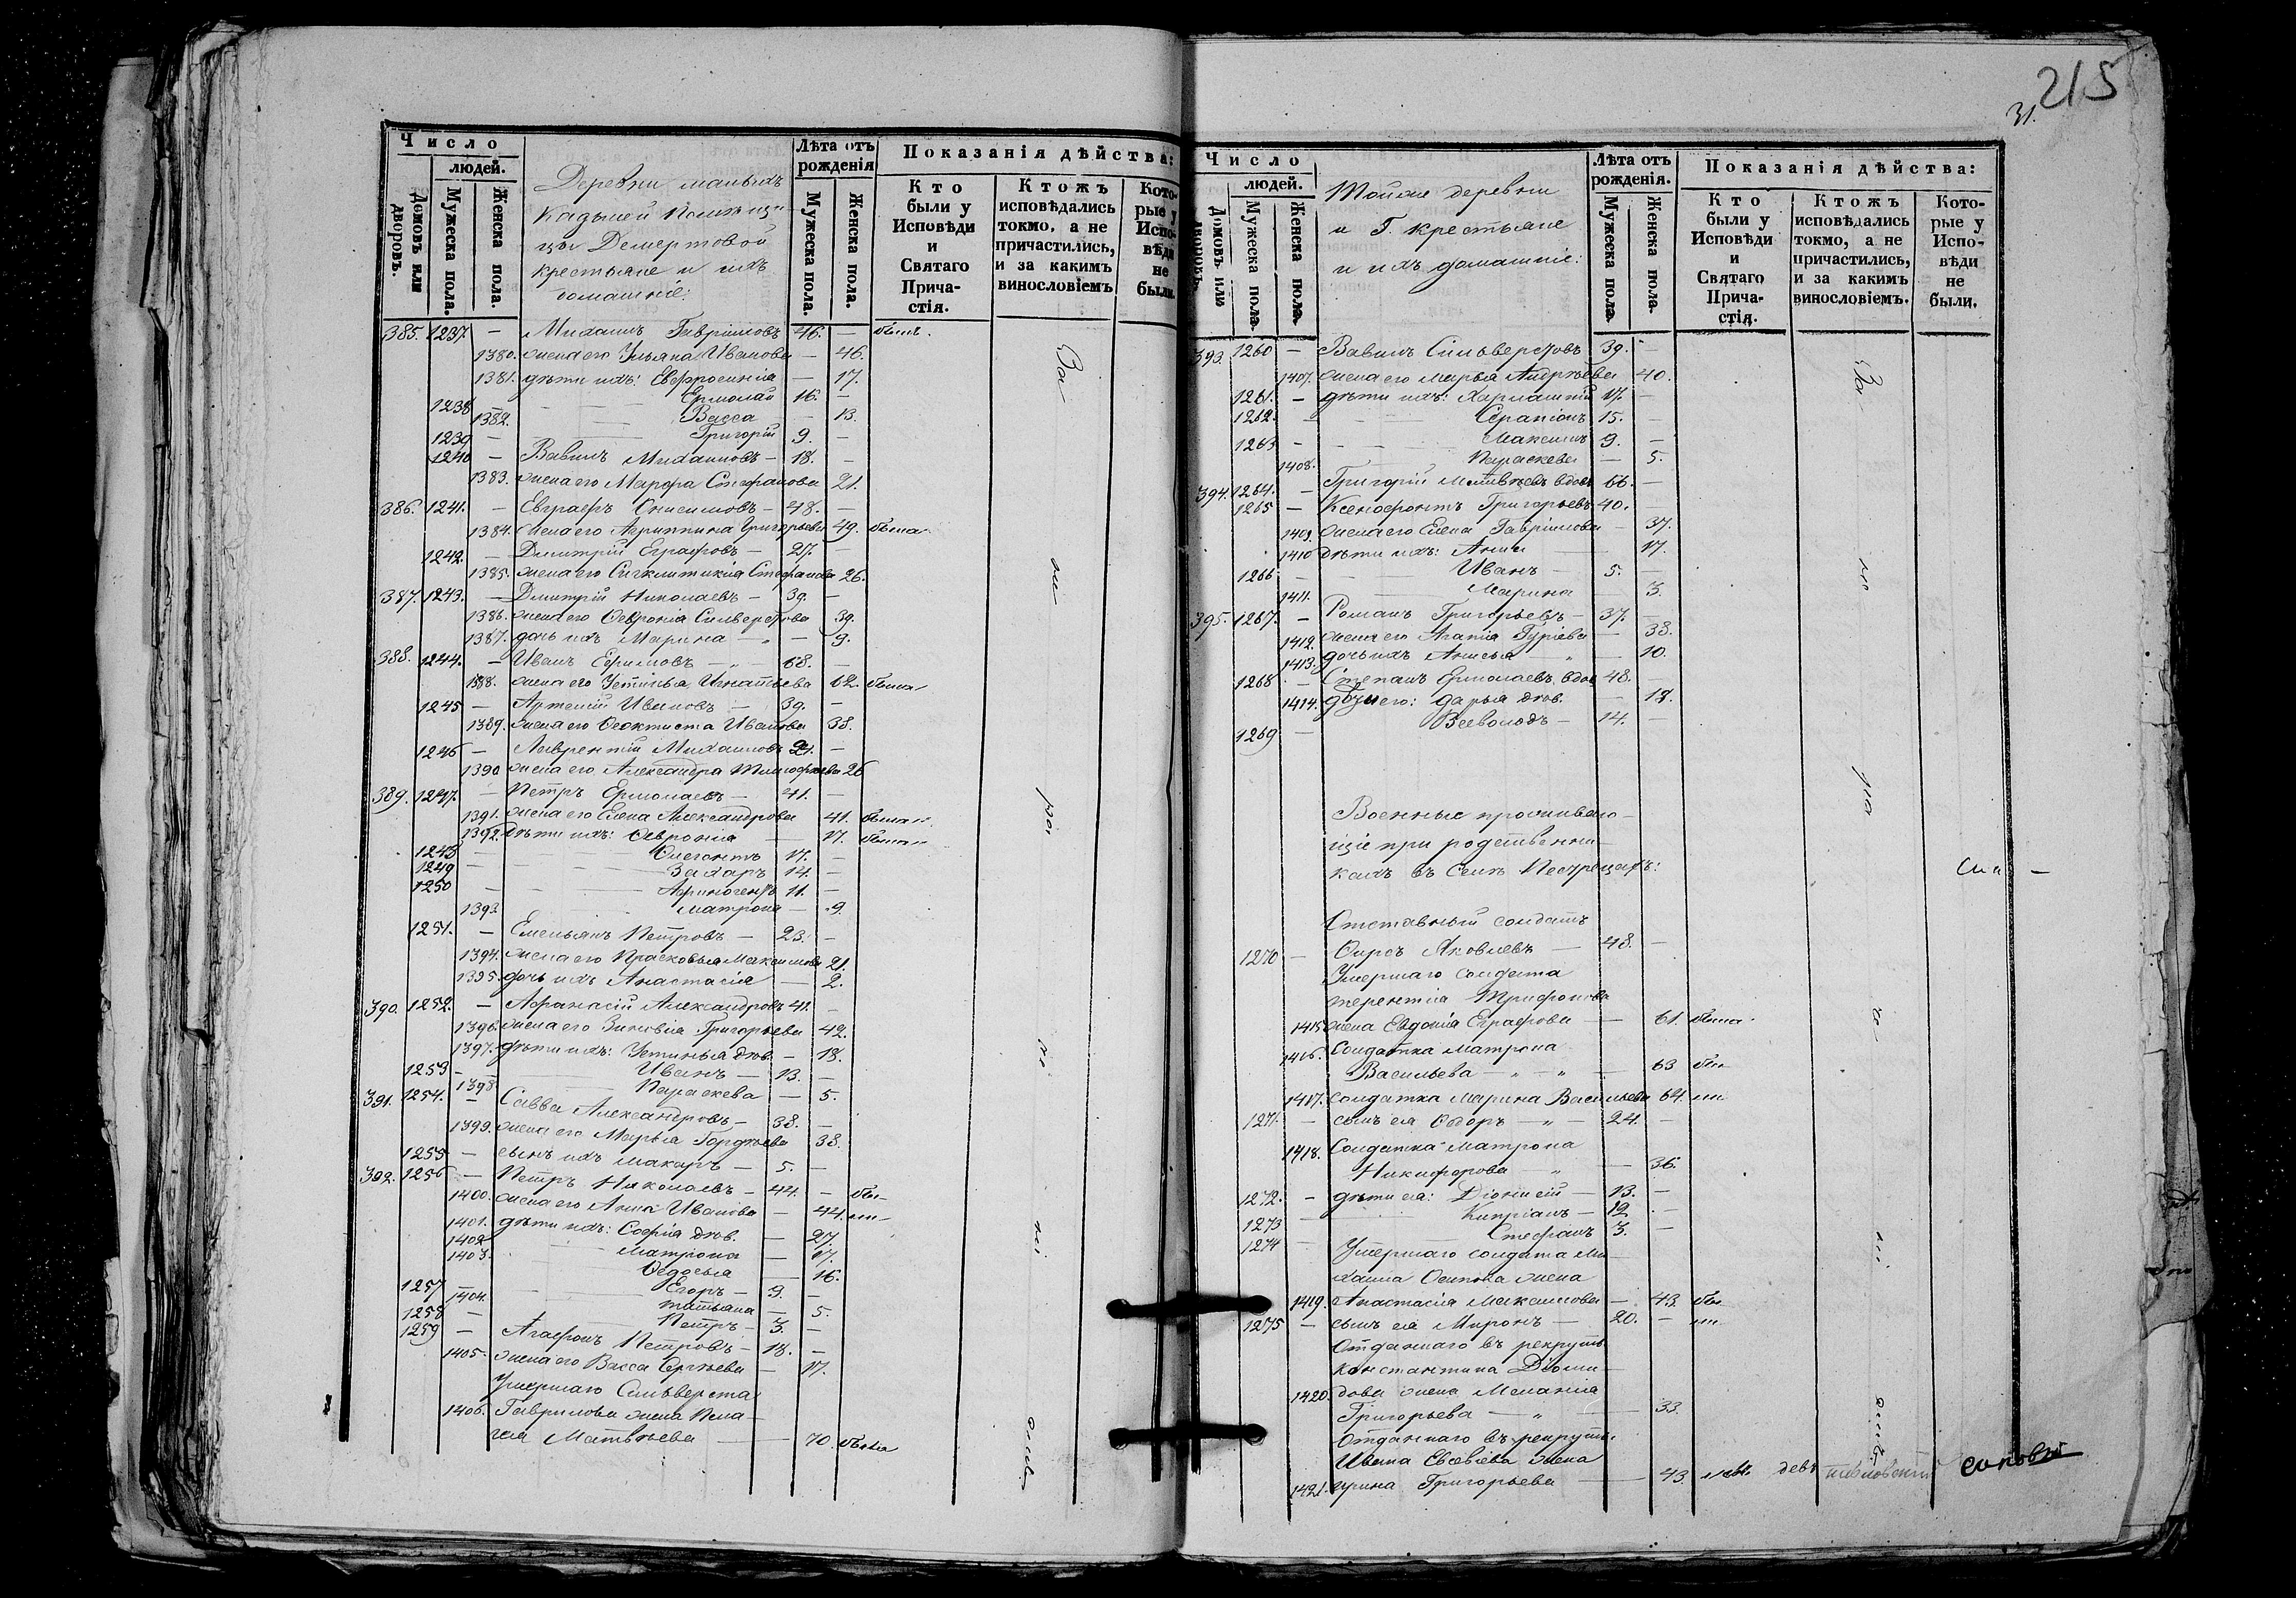 Число
людей.
Домовъ или дворовъ.
Мужеска пола.
Женска пола.
Деревни малыхъ
Кадымей Помѣщи-
цы Демертовой
крестьяне и ихъ
домашніе:
Лѣта отъ рожденія
Мужеска пола.
Женска пола.
Показанія дѣйства:
Кто были у Исповѣди и Святаго Прича-стія.
Ктожъ исповѣдались токмо, а не причастились, и за какимъ винословіемъ
Кото-рые у Испо-вѣди не были.
385. 1237. — Михаилъ Гавріиловъ 46. — былъ.
1380. жена его Ульяна Иванова — 46.
1381. дѣти ихъ: Евфросинія — 17.
1238 — Ермолай 16. —
1382. Васса — 13.
1239 — Григорій 9. —
1240 — Вавилъ Михаиловъ — 18. —
1383. жена его Марфа Стефанова 21.
386. 1241. — Евграфъ Онисимовъ — 48. —
1384. жена его Агриппина Григорьева 49. была
1242. — Дмитрій Еграфовъ — 27. —
1385. жена его Сигклитикія Стефанова 26.
387. 1243. — Дмитрій Николаевъ — 39. —
1386. жена его Ѳевронія Сильверстова 39.
1387. дочь ихъ Марина — „ — 9.
388. 1244. — Иванъ Ефимовъ — „ — 68. —
1388. жена его Устинья Игнатьева 62. была
1245 — Артемій Ивановъ — 39. —
1389. жена его Ѳеоктиста Иванова 38.
1246 — Лаврентій Михаиловъ 21. —
1390 жена его Александра Тимофѣева 26
389. 1247. — Петръ Ермолаевъ — 41. —
1391. жена его Елена Александрова 41. была
1392. дѣти ихъ: Ѳевронія — 17. была
1248 — 17. —
1249 — Захаръ 14. —
1250 — Афиногенъ 11. —
1393. Матрона — 9.
1251. — Емельянъ Петровъ — 23. —
1394. жена его Прасковья Максимова 21.
1395. дочь ихъ Анастасія — 2.
390. 1252. — Афанасій Александровъ 41. —
1396. жена его Зиновія Григорьева 42.
1397. дѣти ихъ: Устинья дѣв. — 18.
1253 — Иванъ — 13. —
1398 Параскева — 5.
391. 1254. — Савва Александровъ — 38. —
1399. жена его Марья Гордѣева 38.
1255 — сынъ ихъ Макаръ — 5. —
392. 1256 — Петръ Николаевъ — 44. — бы-
1400. жена его Анна Иванова — 44. ли-
1401. дѣти ихъ: Софія дѣв. — 27.
1402 Матрона — 17.
1403. Ѳедосья — 16.
1257 — Егоръ — 9. —
1404. Татьяна — 5.
1258 — Петръ — 3. —
1259 — Агафонъ Петровъ — 18. —
1405. жена его Васса Сергѣева — 17.
Умершаго Сильверста
1406. Гаврилова жена Пела-
гея Матвѣева — 70. была
215
31.
Число
людей.
Домовъ или дворовъ.
Мужеска пола
Женска пола.
Тойже деревни
и Г. крестьяне
и ихъ домашніе:
Лѣта отъ рожденія.
Мужеска пола
Женска пола.
Показанія дѣйства:
Кто были у Исповѣди и Святаго Прича-стія.
Ктожъ исповѣдались токмо, а не причастились, и за какимъ винословіемъ.
Кото-рые у Испо-вѣди не были.
393. 1260 — Вавилъ Сильверстовъ 39. —
1407. жена его Марья Андреева 40.
1261. — дѣти ихъ: Харлампій 17. —
1262. — Серапіонъ 15. —
1263 — Максимъ 9. —
1408. Параскева — 5.
394. 1264. — Григорій Матвѣевъ вдовъ 66. —
1265 — Ксенофонтъ Григорьевъ 40. —
1409. жена его Елена Гавріилова — 37.
1410 дѣти ихъ: Анна — 17.
1266 — Иванъ — 5. —
1411. Марина — 3.
395. 1267. — Романъ Григорьевъ — 37. —
1412. жена его Агапія Гуріева — 38.
1413. дочь ихъ Анисья „ — 10.
1268 — Степанъ Ермолаевъ вдов 48. —
1414. дѣти его: Дарья дѣв. — 18.
1269 — Всеволодъ — 14. —
Военные проживаю-
щіе при родственни-
кахъ въ селѣ Пестрецахъ:
Отставный солдатъ
1270 — Ѳирсъ Яковлевъ — 48. —
Умершаго солдата
Терентія Трифонова
1415 жена Евдокія Еграфова — 61. была
1416. Солдатка Матрона
Васильева — „ — „ — 63 бы-
1417. солдатка Марина Васильева 64. ли
1271. — сынъ ея Ѳедоръ — „ — 24. —
1418. Солдатка Матрона
Никифорова — „ — 36.
1272. — дѣти ея: Діонисій — 13. —
1273 — Кипріанъ — 12 —
1274 — Стефанъ 3. —
Умершаго солдата Ми-
хаила Осипова жена
1419. Анастасія Максимова — 43. бы-
1275 — сынъ ея Миронъ — 20. — ли
Отданнаго въ рекруты
Константина Діоми-
1420. дова жена Меланія
Григорьева — „ — 33.
Отданнаго въ рекруты
Ивана Евсевіева жена
1421. Ирина Григорьева — 43.